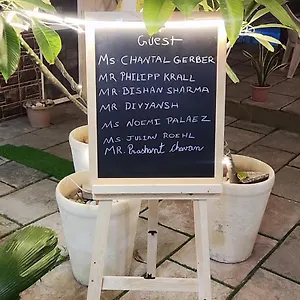 Guest
Ms Chantal GERBER
MR PHILIPP KRALL
MR DISHAN SHARMA
MR DIVYANSH
Ms NOEMI PALAEZ
Ms JULIAN ROEHL
MR. Prashant Chavan